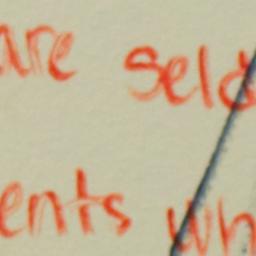 are seld
ents wh